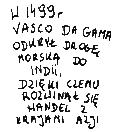 W 1499r.
VASCO DA GAMA
ODKRYŁ DROGĘ
MORSKĄ DO
INDII,
DZIĘKI CZEMU
ROZWINĄŁ SIĘ
HANDEL Z
KRAJAMI AZJI